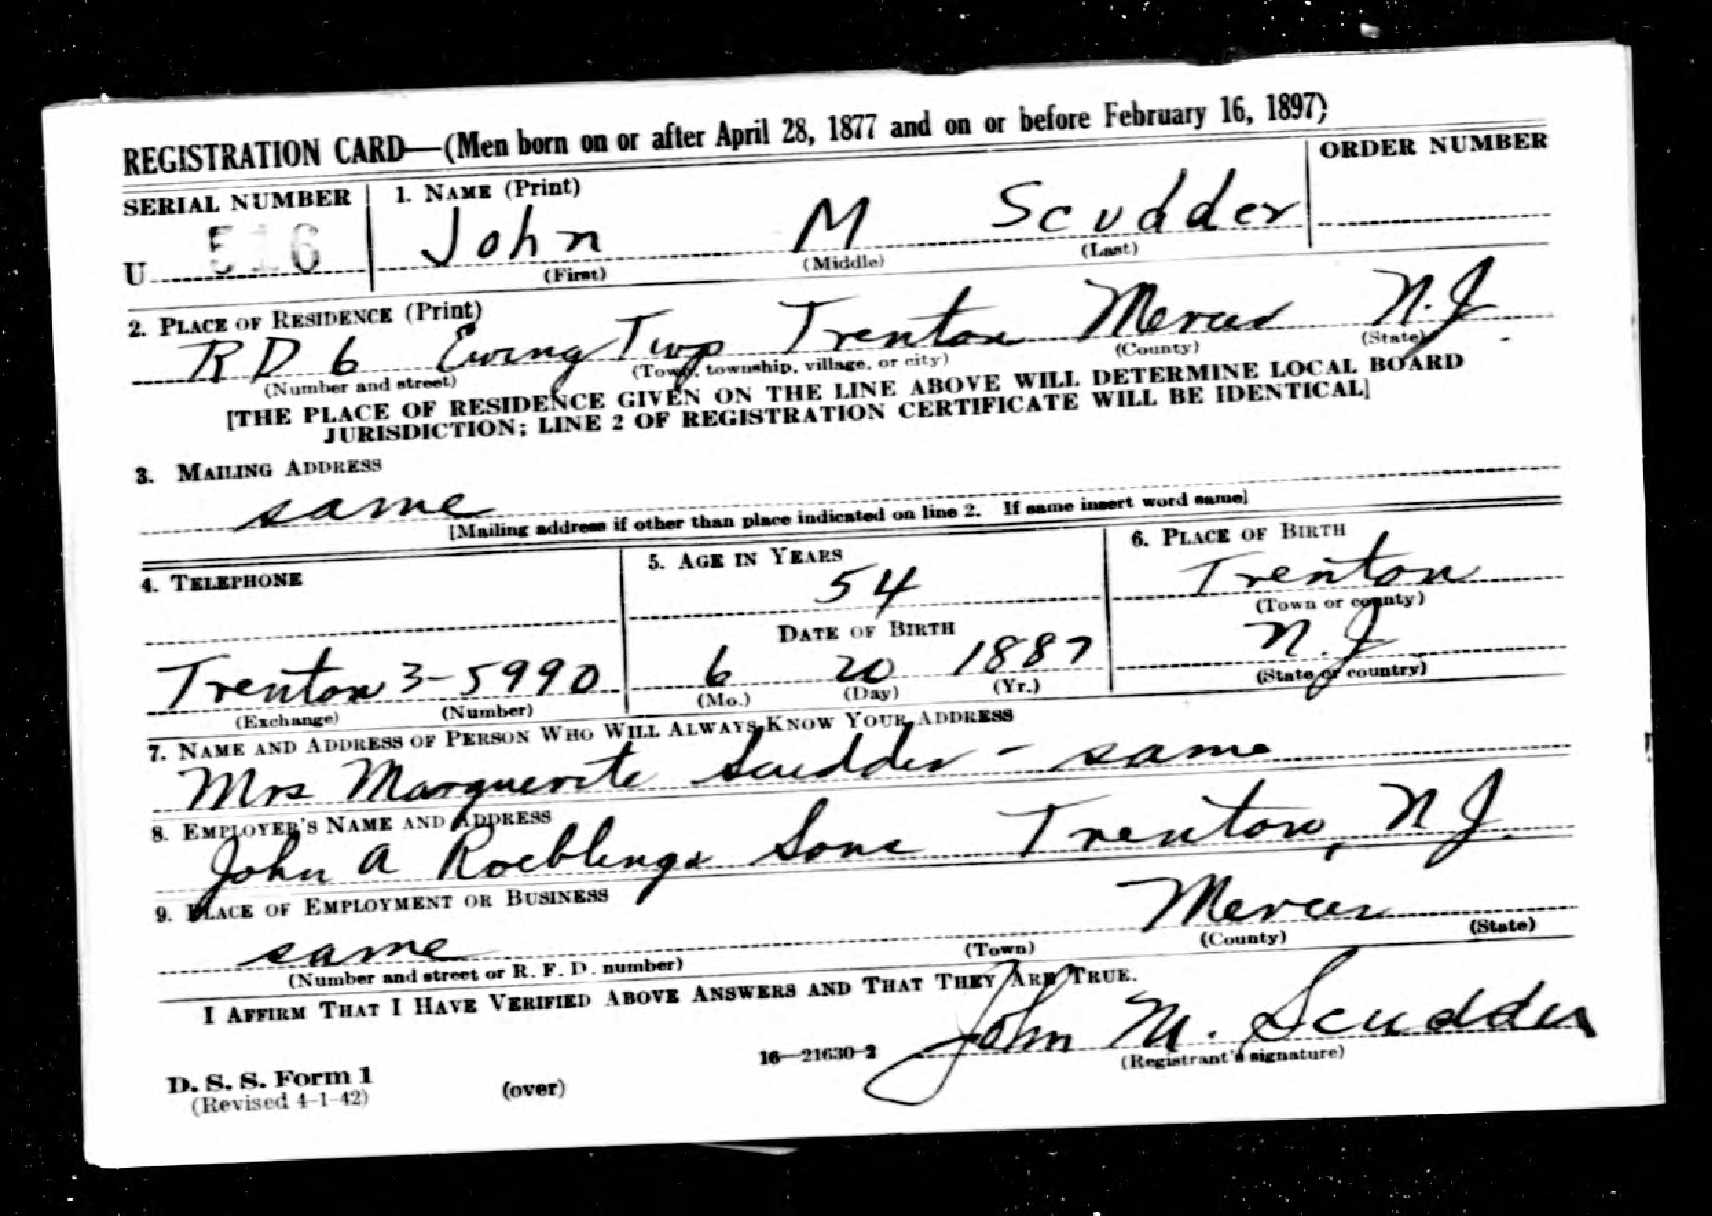 REGISTRATION CARD—(Men born on or after April 28, 1877 and on or before February 16, 1897)
SERIAL NUMBER 1. NAME (Print) ORDER NUMBER
U 516 John M Scudder
(First) (Middle) (Last)
2. PLACE OF RESIDENCE (Print)
RD 6 Ewing Twp Trenton Mercer N.J.
(Number and street) (Town, township, village, or city) (County) (State)
[THE PLACE OF RESIDENCE GIVEN ON THE LINE ABOVE WILL DETERMINE LOCAL BOARD
JURISDICTION; LINE 2 OF REGISTRATION CERTIFICATE WILL BE IDENTICAL]
3. MAILING ADDRESS
same
[Mailing address if other than place indicated on line 2. If same insert word same]
4. TELEPHONE 5. AGE IN YEARS 6. PLACE OF BIRTH
54 Trenton
(Town or county)
DATE OF BIRTH N.J.
Trenton 3-5990 6 20 1887
(Exchange) (Number) (Mo.) (Day) (Yr.) (State or country)
7. NAME AND ADDRESS OF PERSON WHO WILL ALWAYS KNOW YOUR ADDRESS
Mrs Marguerite Scudder - same
8. EMPLOYER'S NAME AND ADDRESS
John A Roeblings Sons Trenton, N J.
9. PLACE OF EMPLOYMENT OR BUSINESS
same Mercer
(Number and street or R. F. D. number) (Town) (County) (State)
I AFFIRM THAT I HAVE VERIFIED ABOVE ANSWERS AND THAT THEY ARE TRUE.
John M. Scudder
16—21630-2 (Registrant's signature)
D. S. S. Form 1
(Revised 4-1-42) (over)